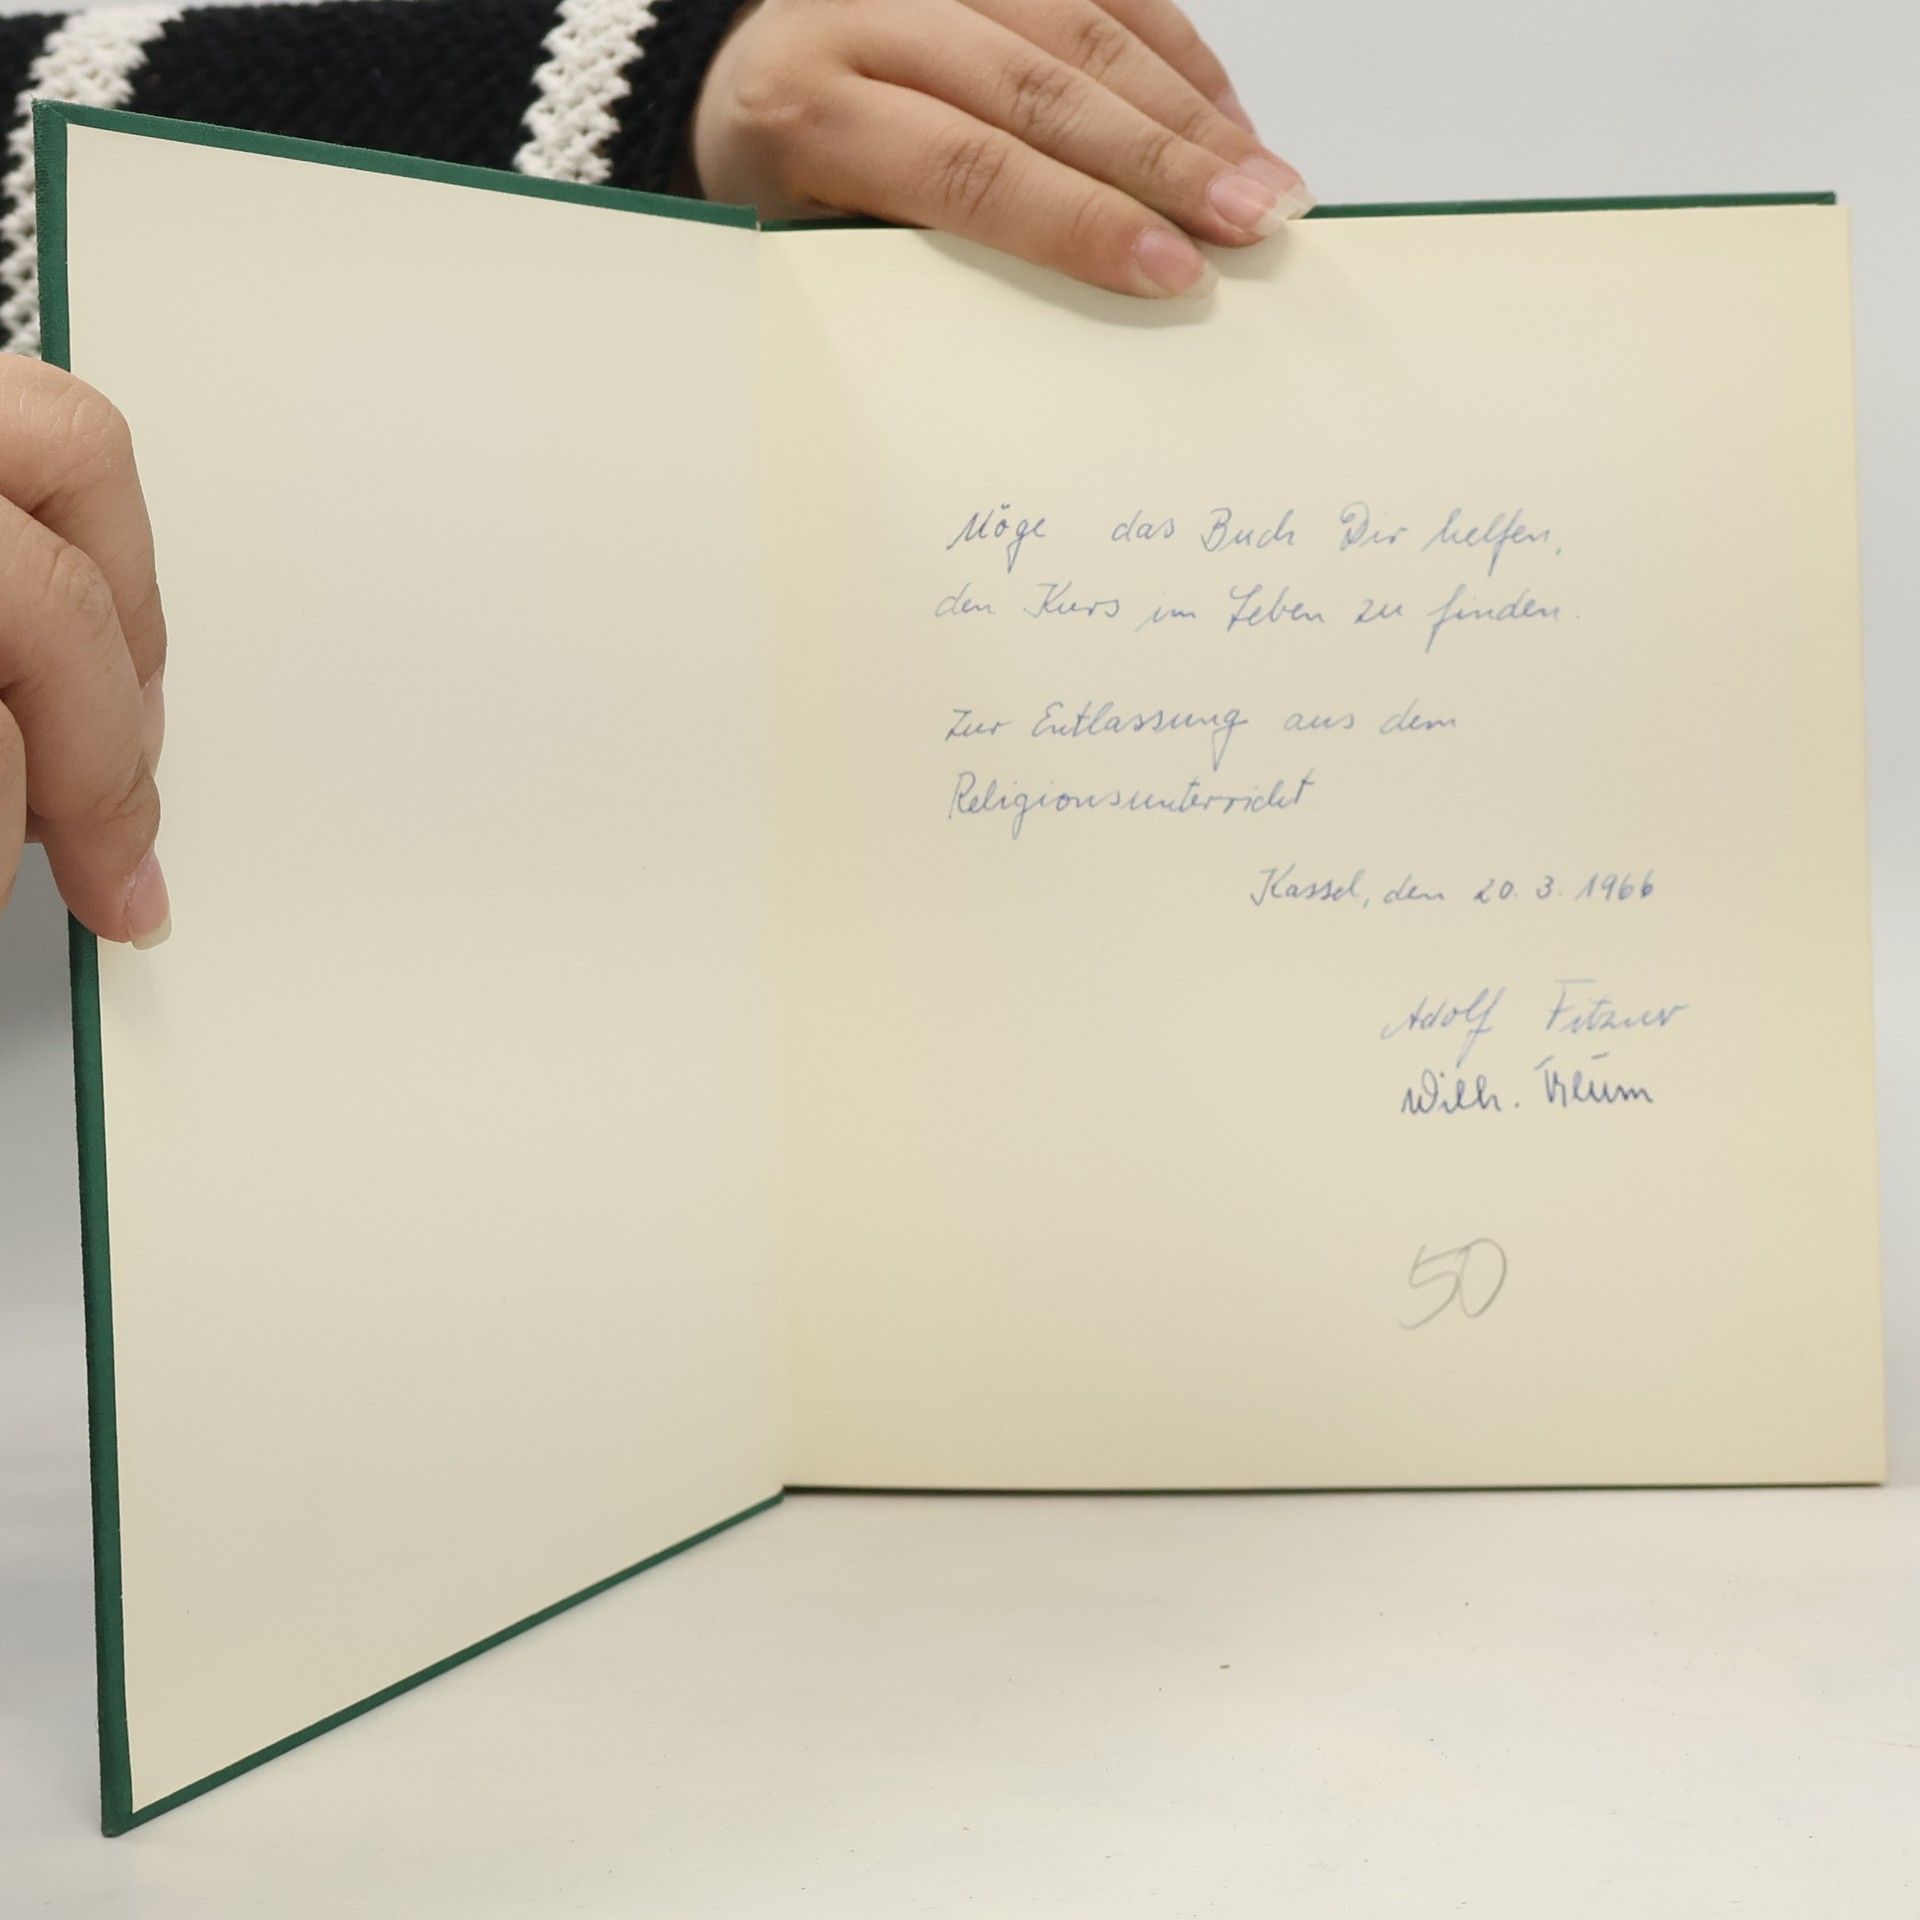 Möge das Buch Dir helfen,
den Kurs im Leben zu finden.
Zur Entlassung aus dem
Religionsunterricht
Kassel, den 20. 3. 1966
Adolf
Wilh.
50